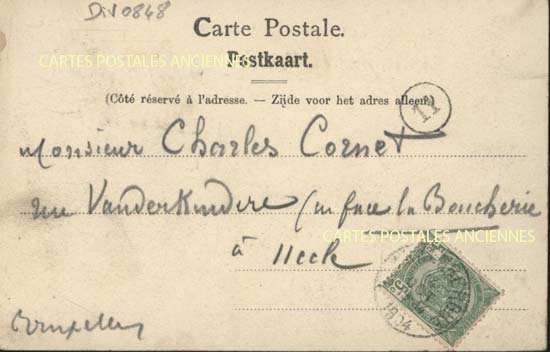 Div 0848
Carte Postale.
CARTES POSTALES ANCIENNES
Postkaart.
(Côté réservé à l'adresse. — Zijde voor het adres alleen.)
11
Monsieur Charles Cornet
rue Vanderkindere (en face la Boucherie
CARTES POSTALES ANCIENNES
à Uccle
1904
Bruxelles